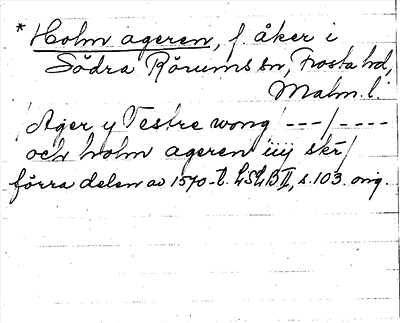 * Holm ageren, f. åker i
Södra Rörums sn, Frosta hd,
Malm. l.
/ Ager y Vestre wong /---/----
och holm ageren iiij skr /
förra delen av 1570-t. LSLB II, s. 103. orig.